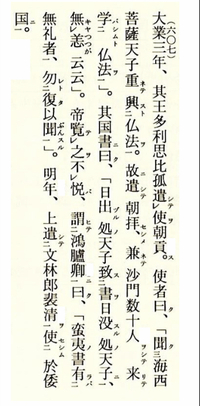 (六〇七)
大業三年、其王多利思比孤遣使朝貢。使者曰、「聞海西
菩薩天子重興仏法。故遣朝拝、兼沙門数十人、来
学仏法」。其国書曰、「日出処天子致書日没処天子、
無恙云云」。帝覧之不悦、謂鴻臚卿曰、「蛮夷書有
無礼者、勿復以聞」。明年、上遣文林郎裴清使於倭
国。